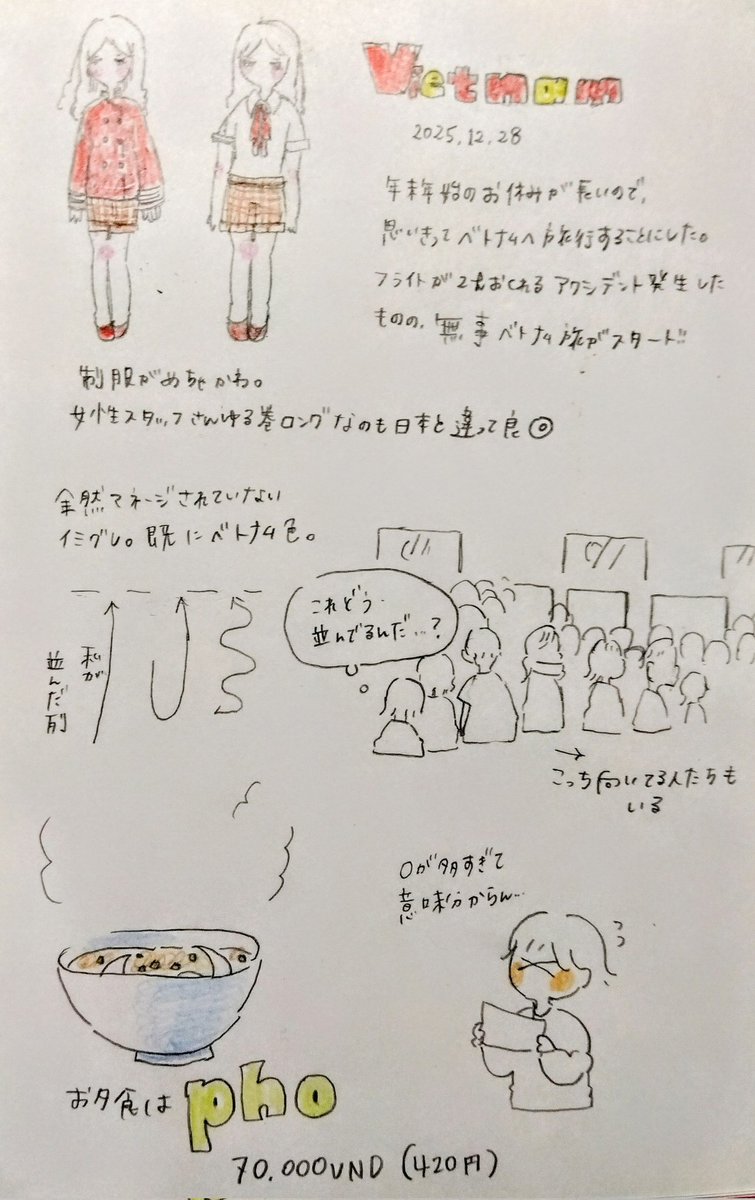 Vietnam
2025.12.28
年末年始のお休みが長いので、
思いきってベトナムへ旅行することにした。
フライトが2hおくれるアクシデント発生した
ものの、無事ベトナム旅がスタート!!
制服がめちゃかわ。
女性スタッフさんゆる巻ロングなのも日本と違って良◎
全然マネージされていない
イミグレ。既にベトナム色。
私が
並んだ列
これどう
並んでるんだ…?
→
こっち向いてる人たちも
いる
0が多すぎて
意味分からん…
お夕食は pho
70.000VND (420円)